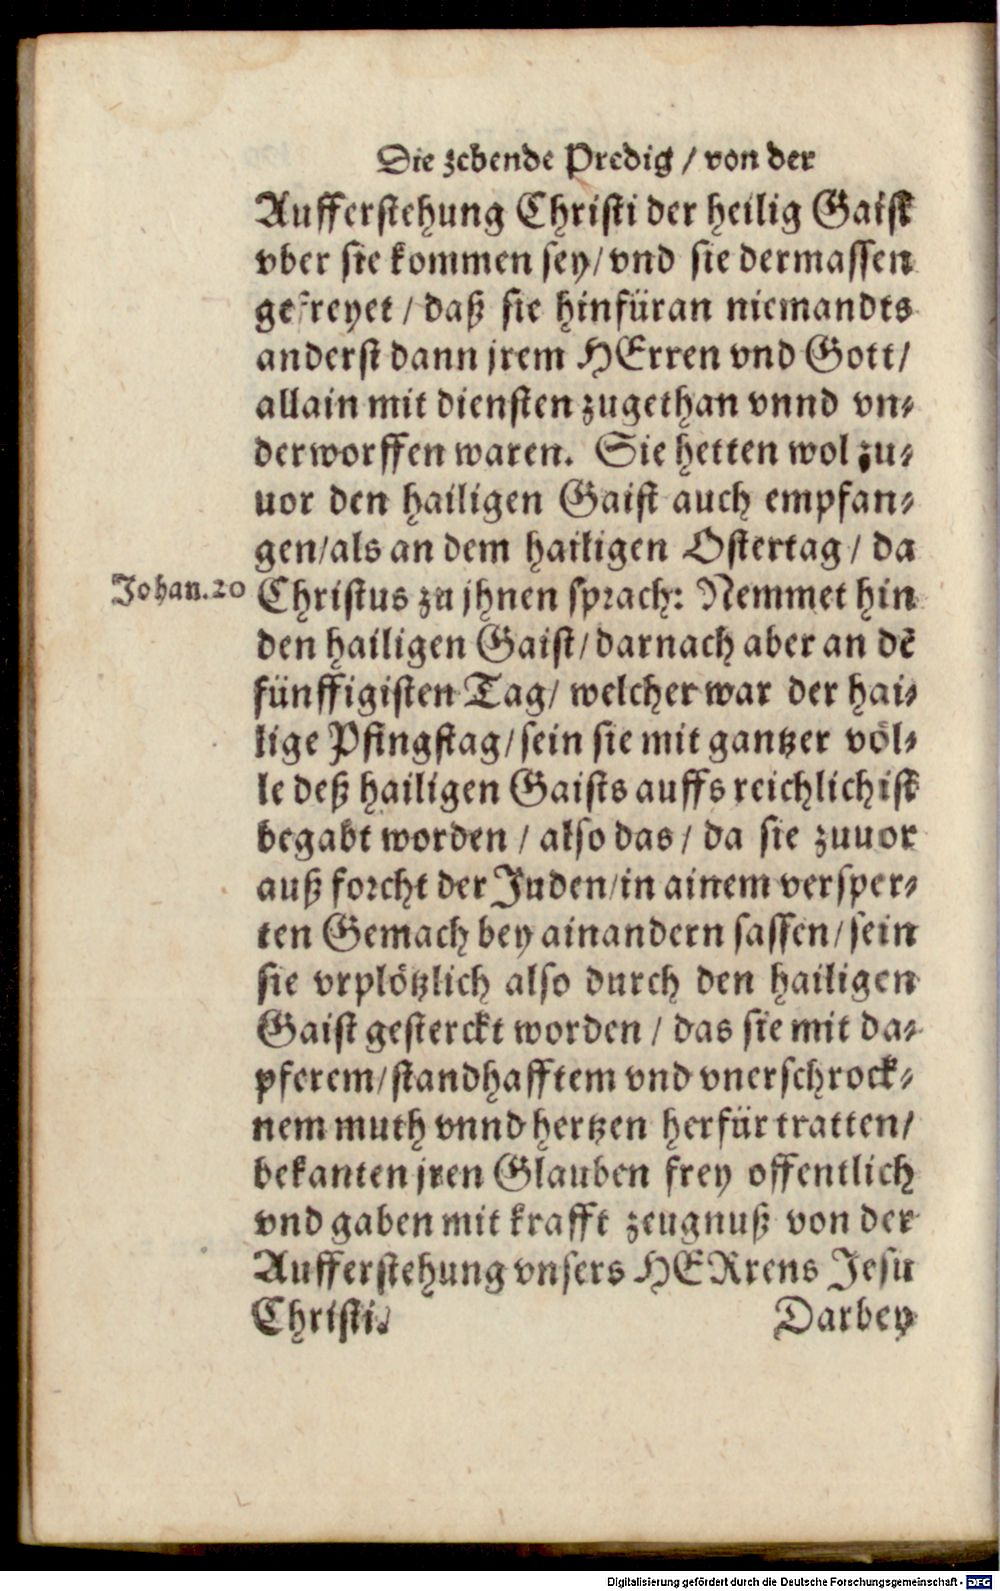 Die zehende Predig / von der
Aufferstehung Christi der heilig Gaist
vber sie kommen sey / vnd sie dermassen
gefreyet / daß sie hinfüran niemandts
anderst dann jrem HErren vnd Gott /
allain mit diensten zugethan vnnd vn⸗
derworffen waren. Sie hetten wol zu⸗
uor den hailigen Gaist auch empfan⸗
gen / als an dem hailigen Ostertag / da
Johan. 20 Christus zu jhnen sprach: Nemmet hin
den hailigen Gaist / darnach aber an dẽ
fünffigisten Tag / welcher war der hai⸗
lige Pfingstag / sein sie mit gantzer völ⸗
le deß hailigen Gaists auffs reichlichist
begabt worden / also das / da sie zuuor
auß forcht der Juden / in ainem versper⸗
ten Gemach bey ainandern sassen / sein
sie vrplötzlich also durch den hailigen
Gaist gesterckt worden / das sie mit da⸗
pferem / standhafftem vnd vnerschrock⸗
nem muth vnnd hertzen herfür tratten /
bekanten jren Glauben frey offentlich
vnd gaben mit krafft zeugnuß von der
Aufferstehung vnsers HERrens Jesu
Christi. Darbey
Digitalisierung gefördert durch die Deutsche Forschungsgemeinschaft - DFG